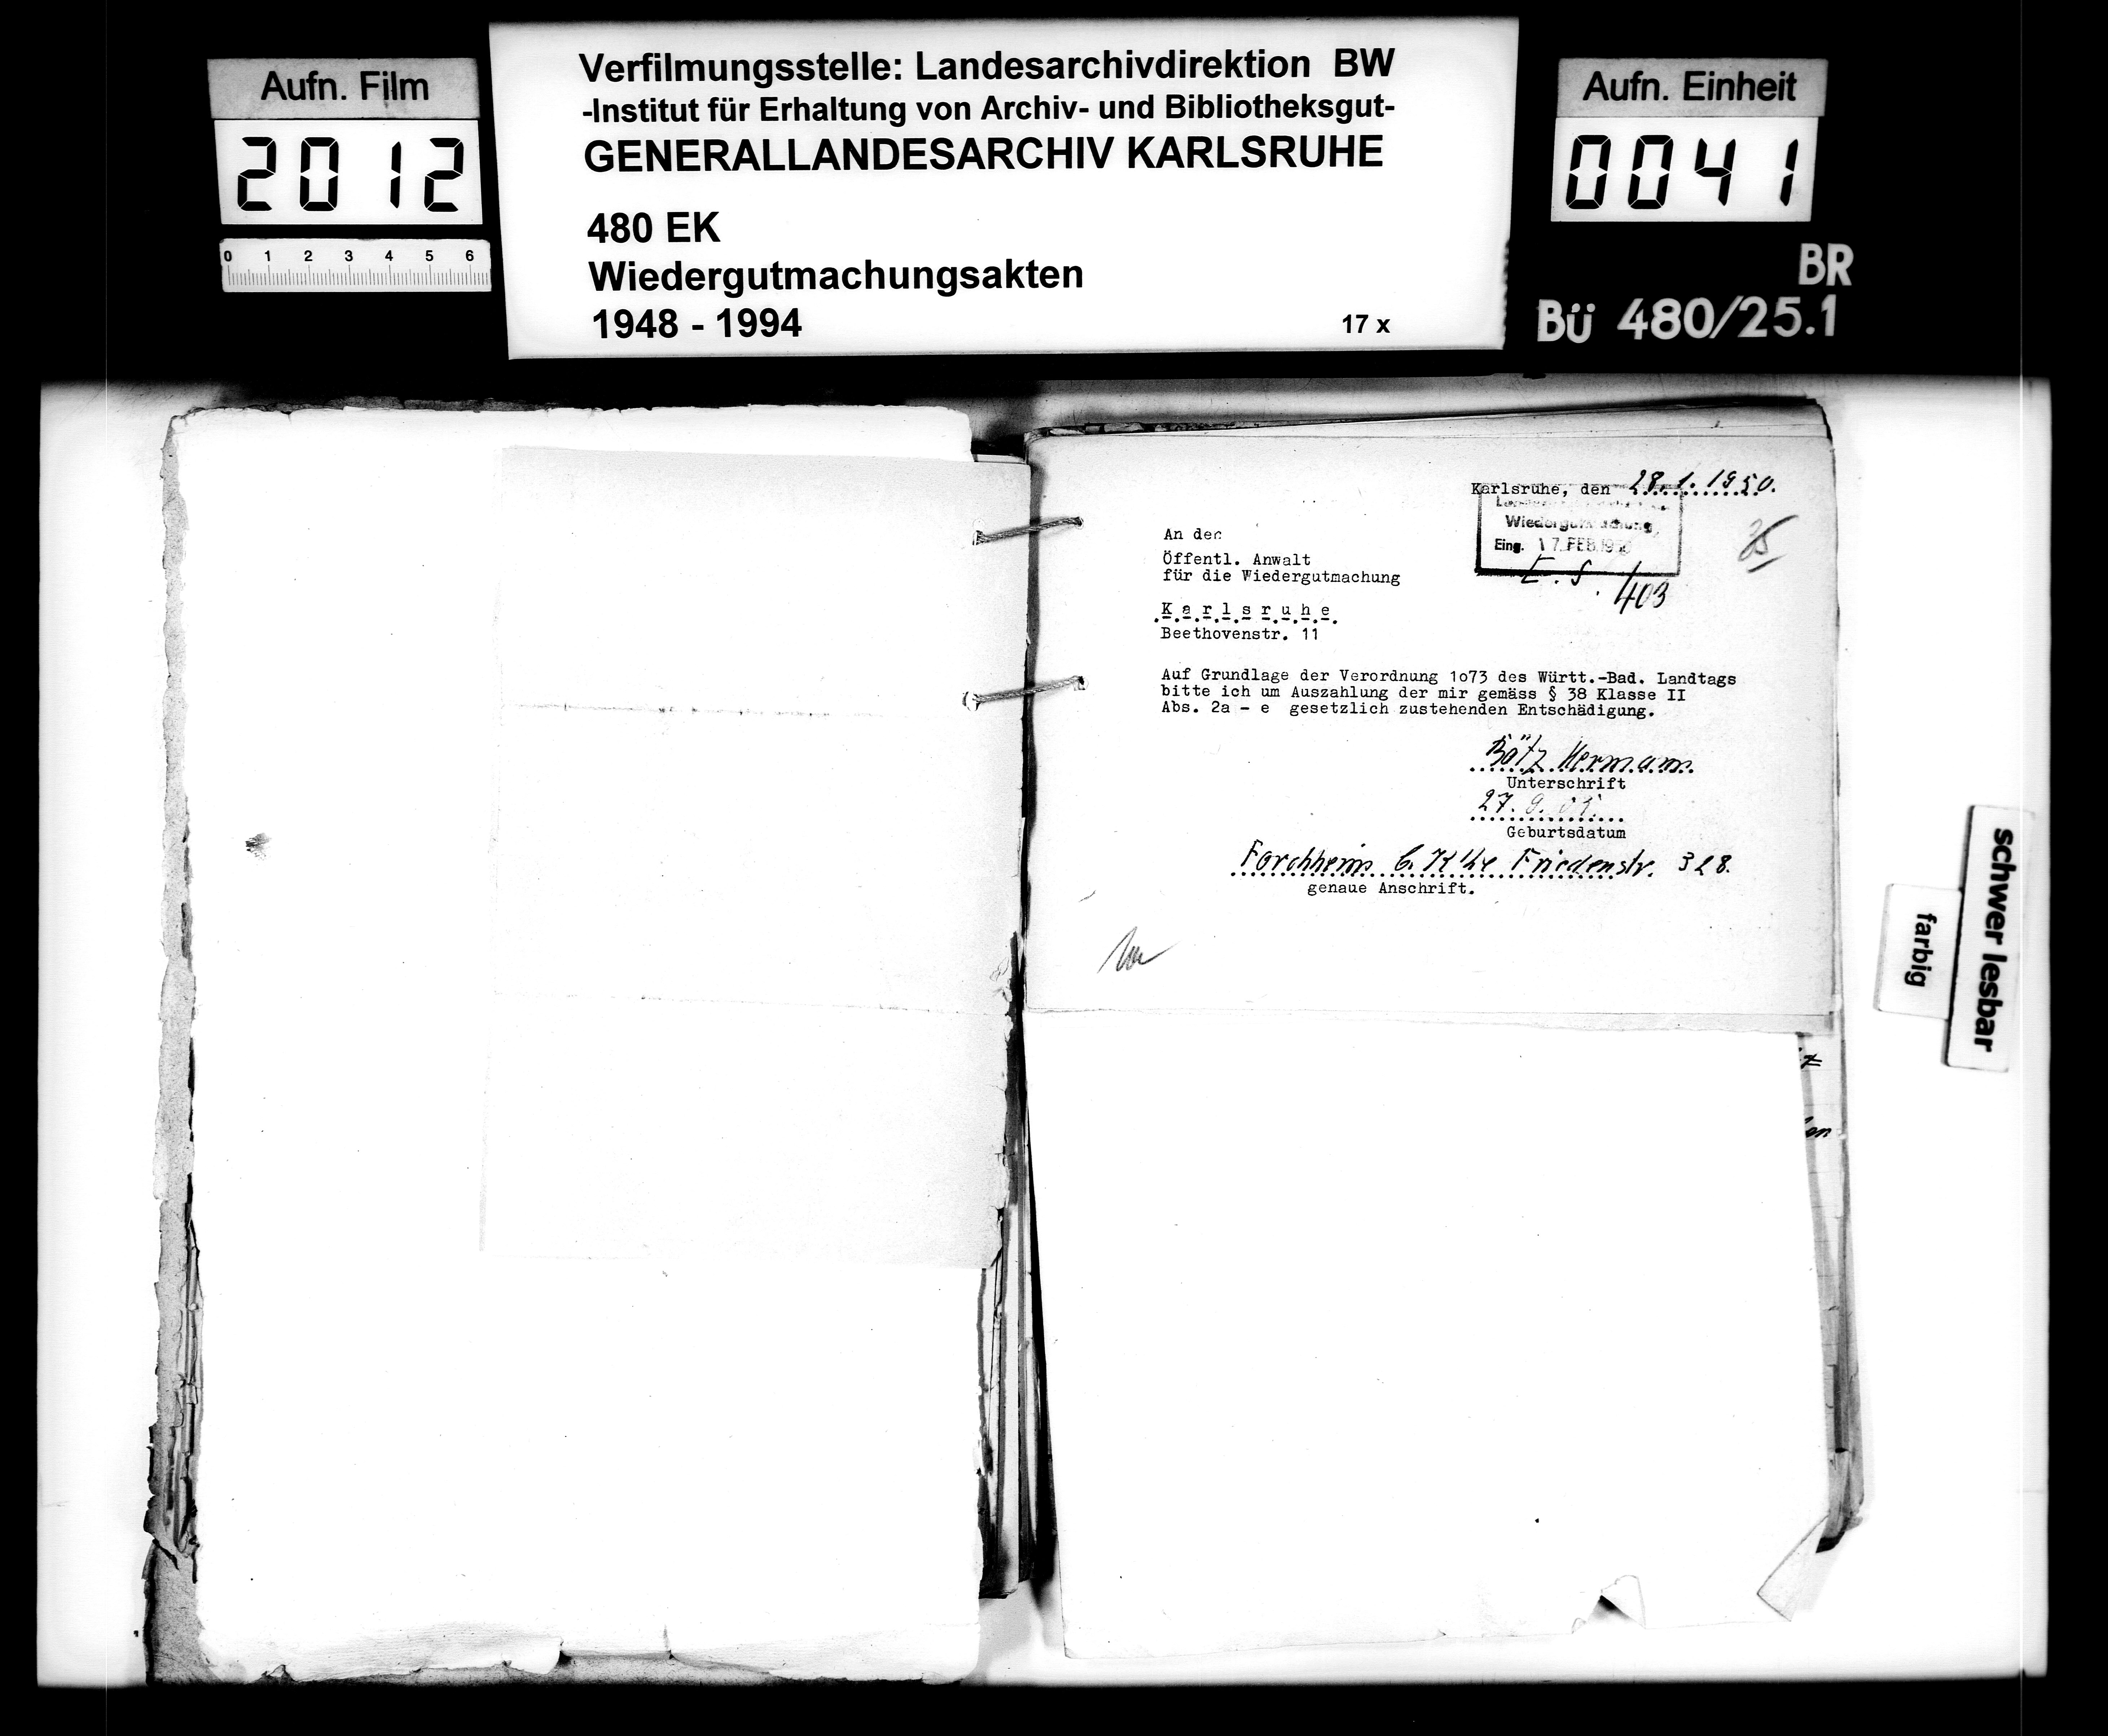 Aufn. Film
2012
0 1 2 3 4 5 6
Verfilmungsstelle: Landesarchivdirektion BW
-Institut für Erhaltung von Archiv- und Bibliotheksgut-
GENERALLANDESARCHIV KARLSRUHE
480 EK
Wiedergutmachungsakten
1948 - 1994
17 x
Aufn. Einheit
0041
BR
Bü 480/25.1
Karlsruhe, den 28.1.1950.
Wiedergutmachung
Eing. 17. FEB. 1950
E. S.
403
An den
Öffentl. Anwalt
für die Wiedergutmachung
Karlsruhe
Beethovenstr. 11
Auf Grundlage der Verordnung 1o73 des Württ.-Bad. Landtags
bitte ich um Auszahlung der mir gemäss § 38 Klasse II
Abs. 2a - e gesetzlich zustehenden Entschädigung.
Bötz Hermann
Unterschrift
27. 9.
Geburtsdatum
Forchheim b. Khe Friedenstr. 328.
genaue Anschrift.
farbig
schwer lesbar